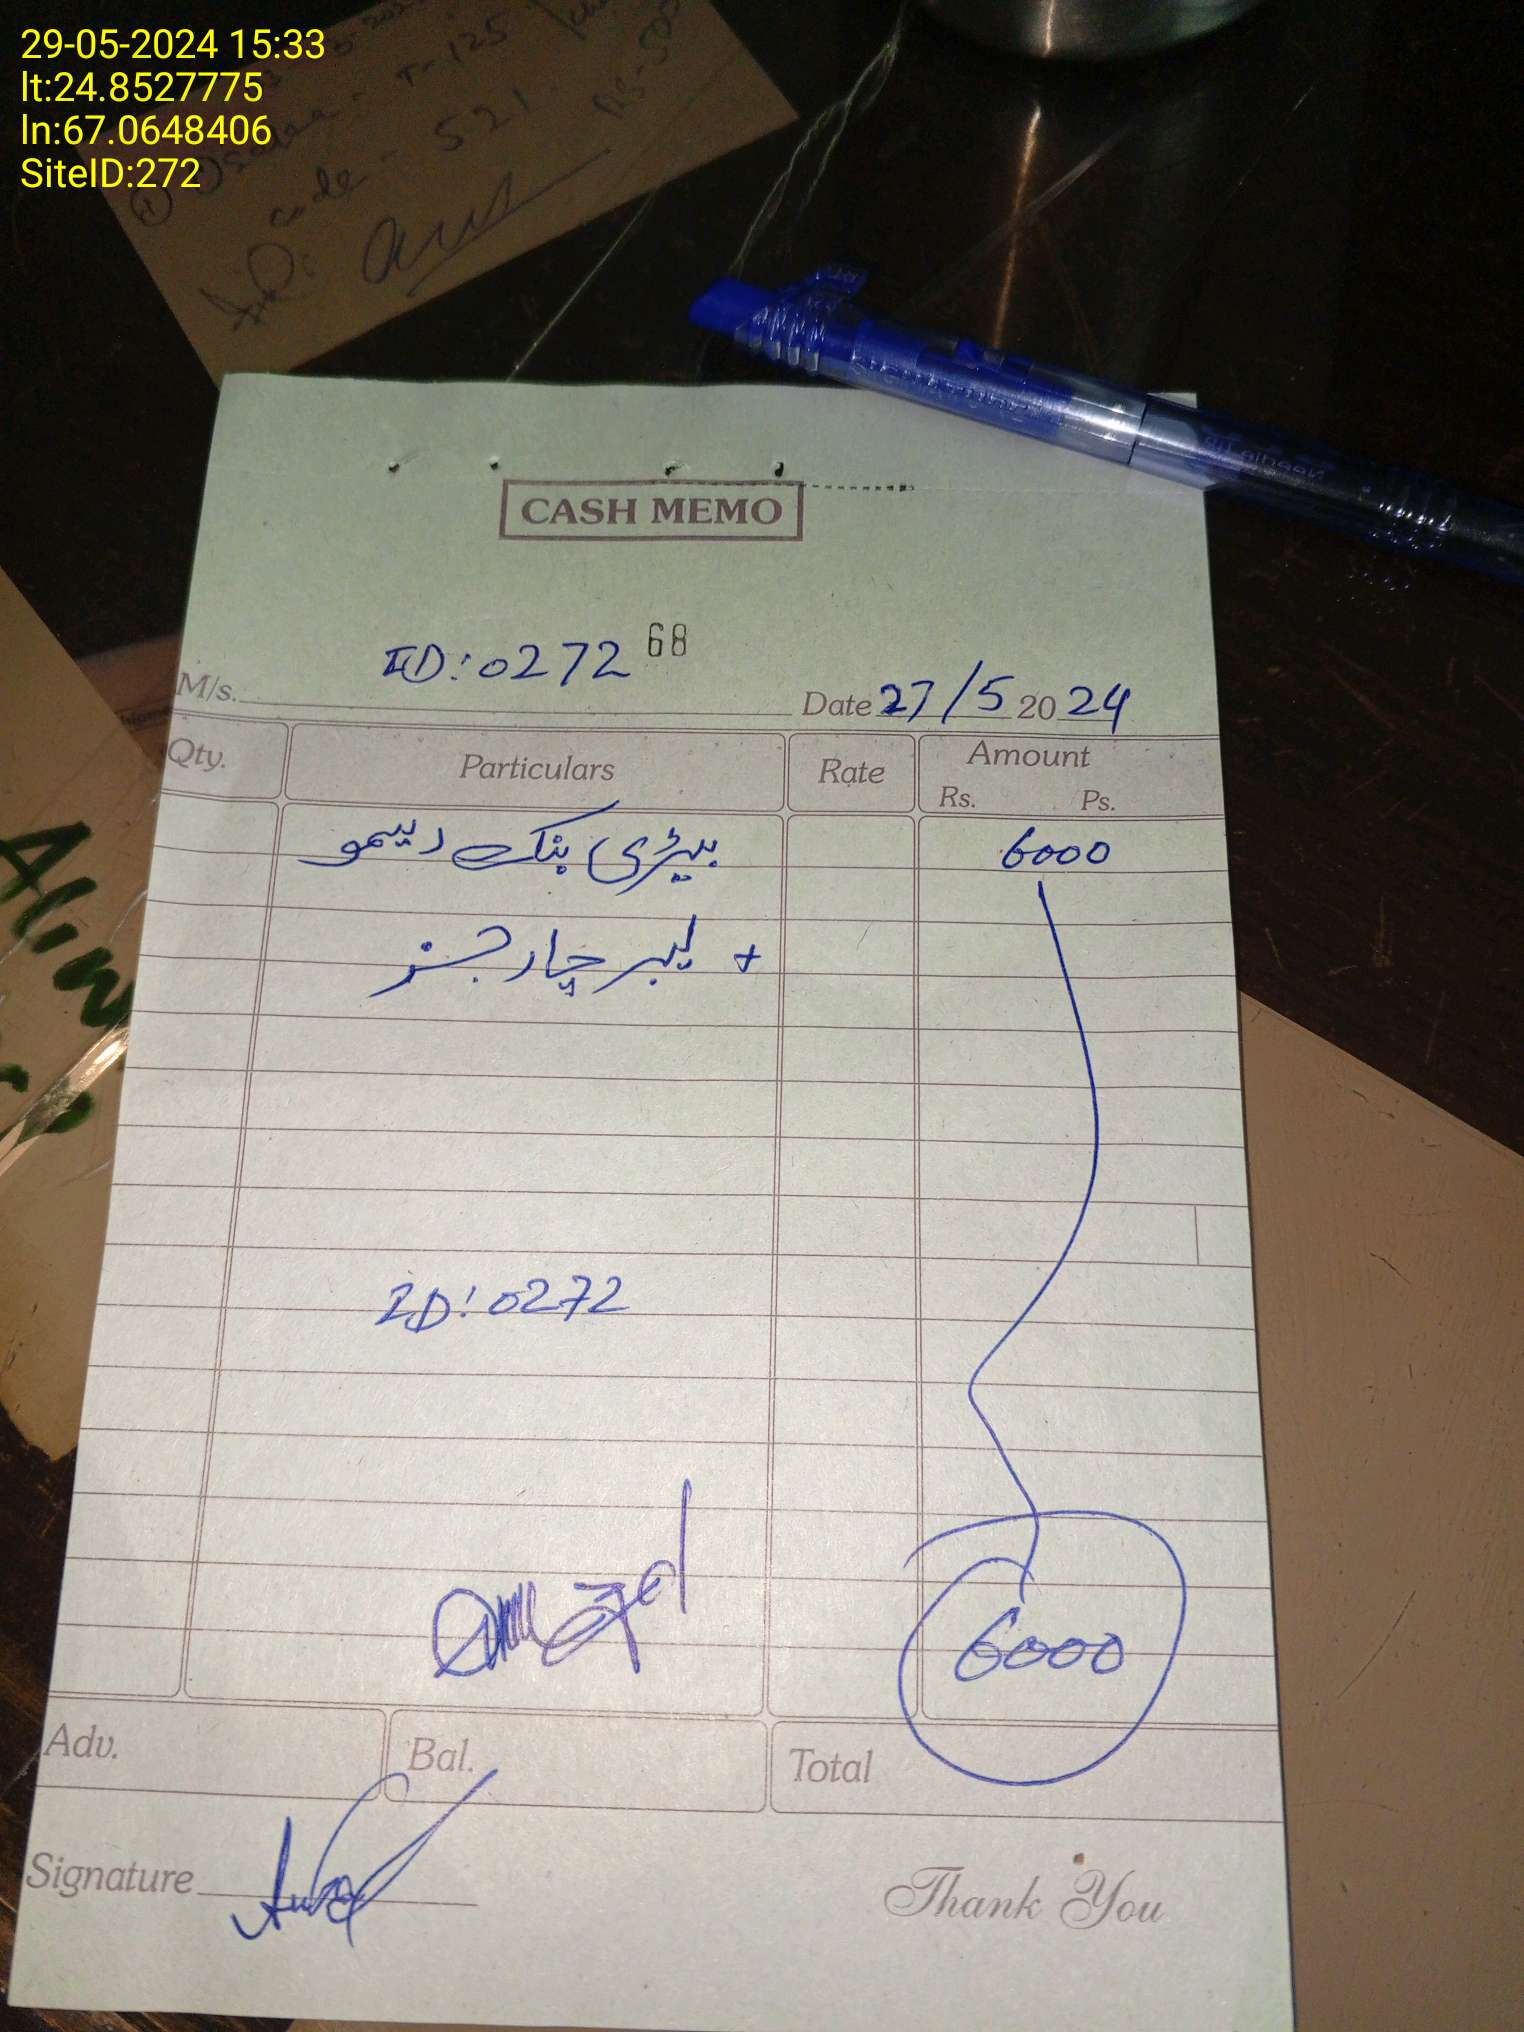 29-05-2024 15:33
lt:24.8527775
ln:67.0648406
SiteID:272
T-125
code - 521
CASH MEMO
ID:0272 68
M/s. Date 27/5 2024
Qty. Particulars Rate Amount
Rs. Ps.
بیٹری بنک ریمو 6000
+ لیبر چارجز
ID:0272
6000
Adv. Bal. Total
Signature
Thank You